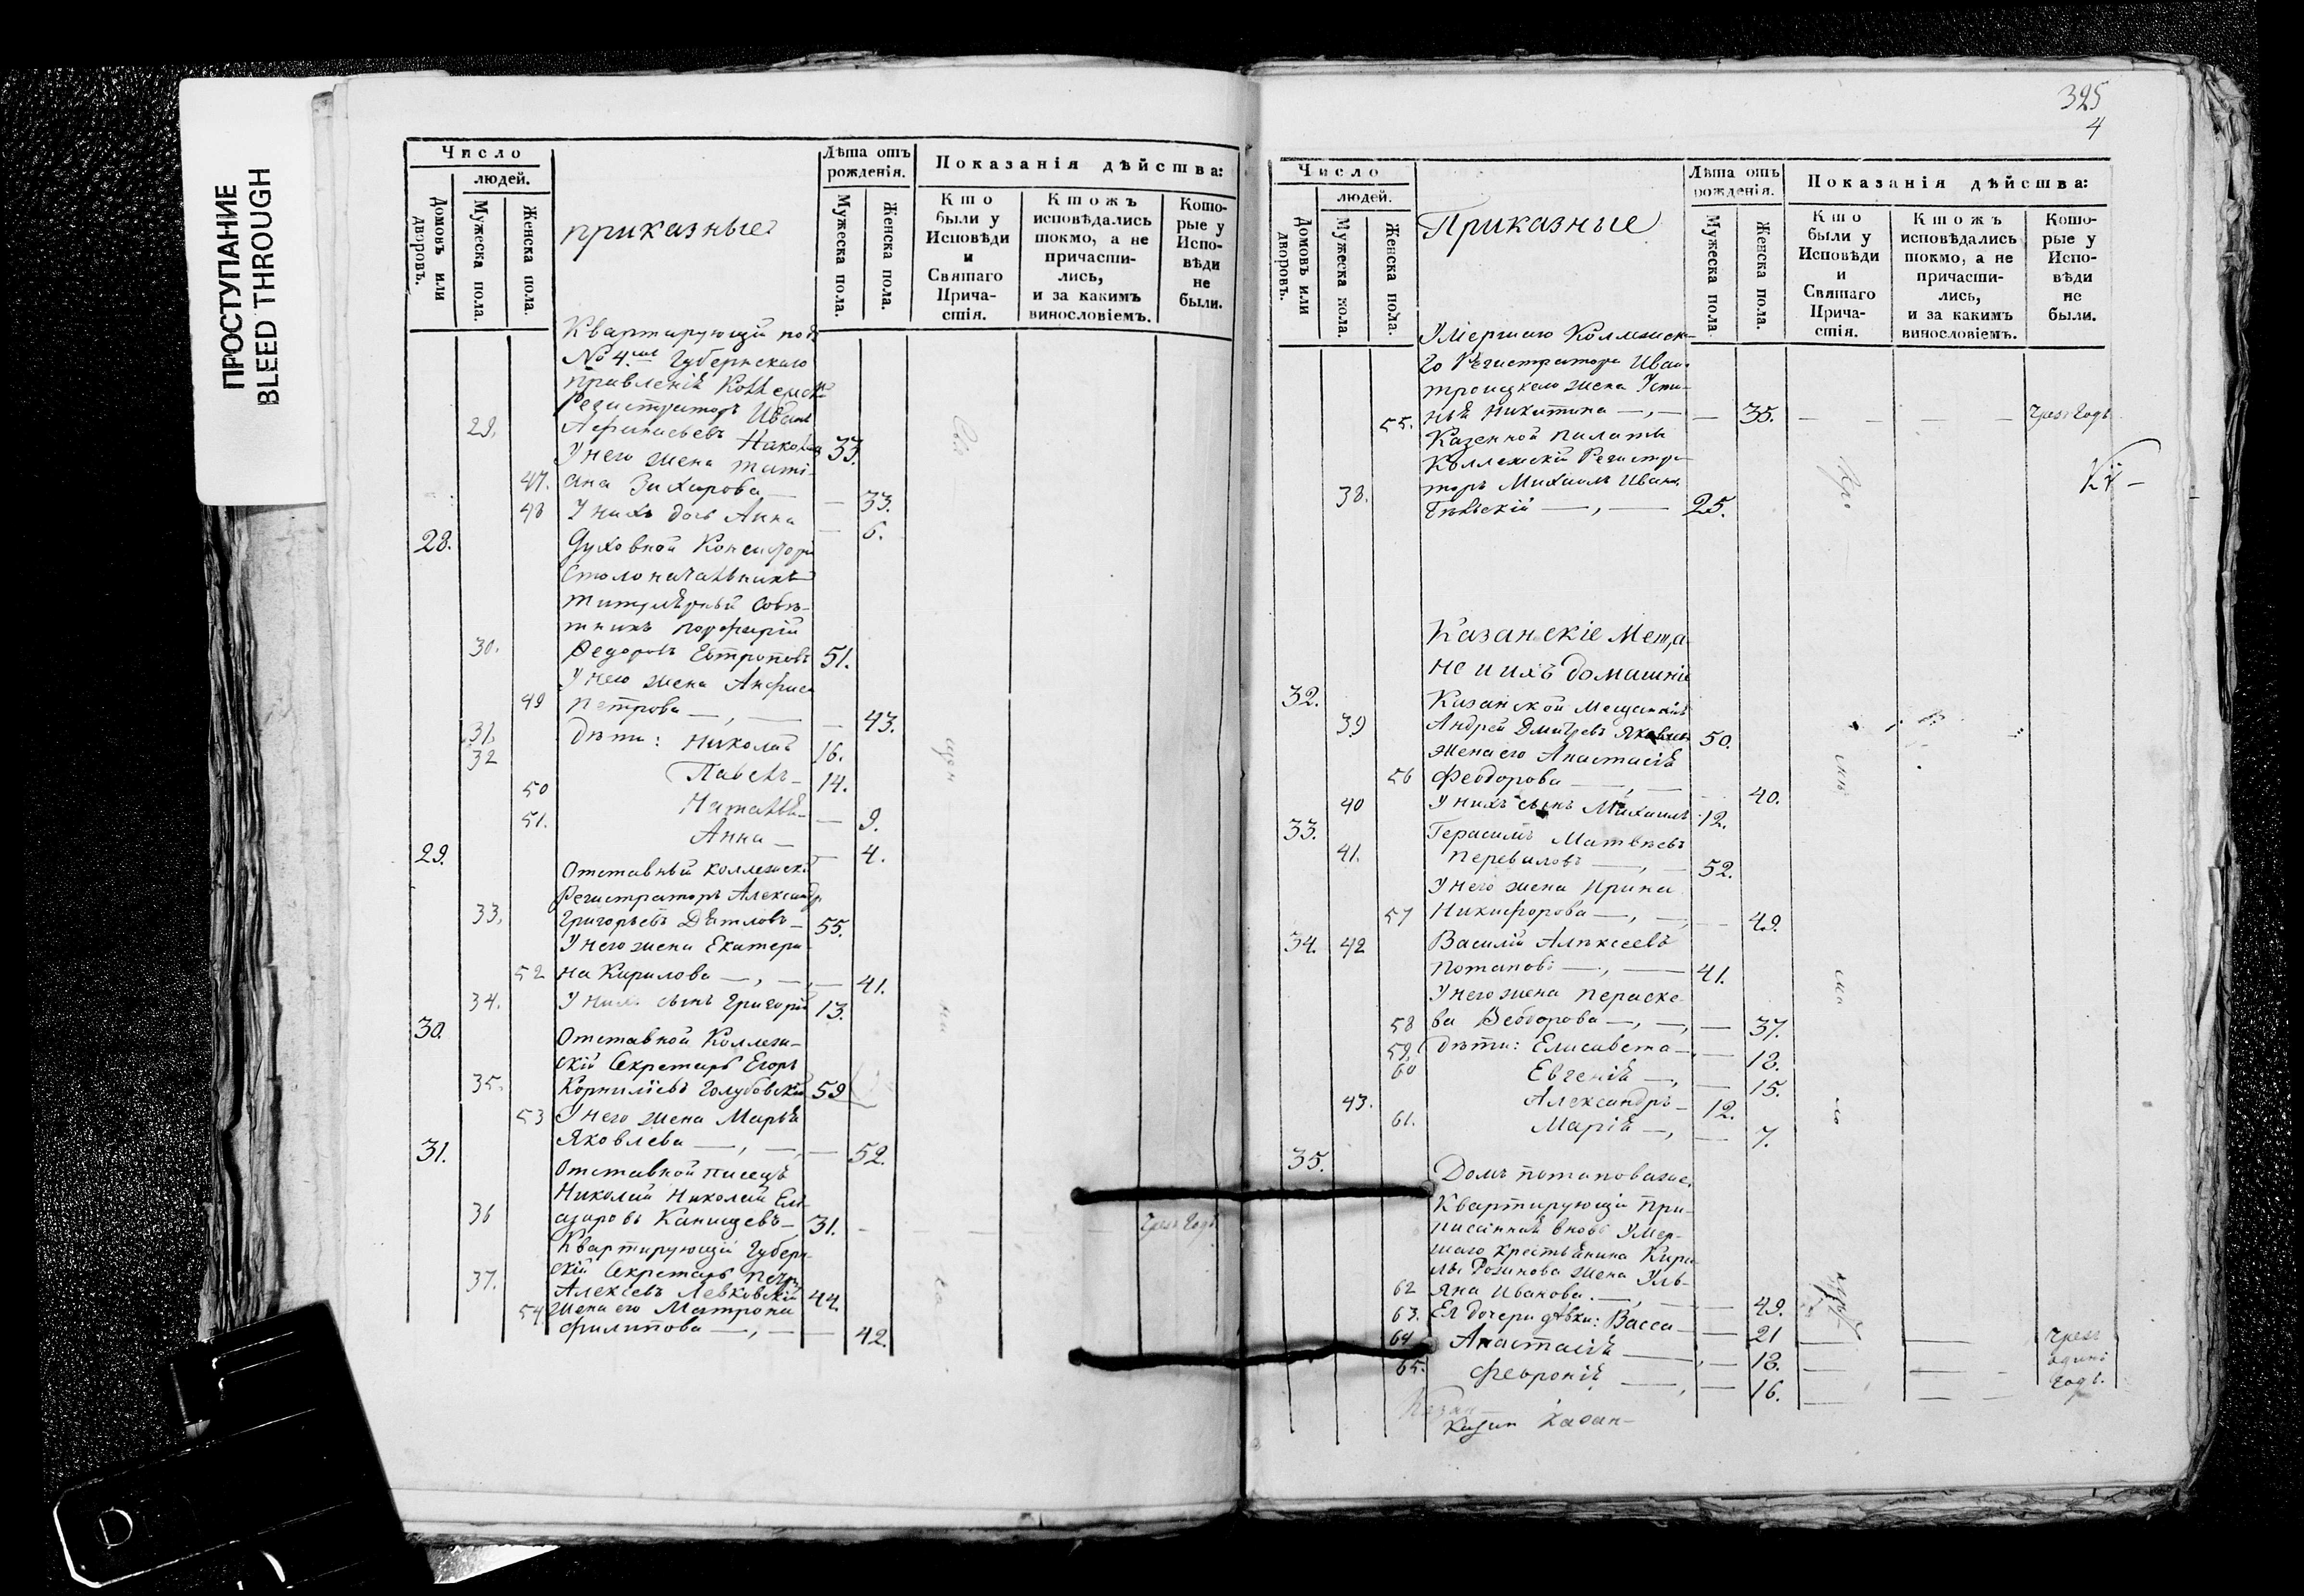 ПРОСТУПАНИЕ
BLEED THROUGH
Число
людей.
Домовъ или дворовъ.
Мужеска пола.
Женска пола.
приказные
Лѣта отъ рожденія.
Мужеска пола.
Женска пола.
Показанія дѣйства:
Кто были у Исповѣди и Святаго Прича-стія.
Ктожъ исповѣдались токмо, а не причасти-лись, и за какимъ винословіемъ.
Кото-рые у Испо-вѣди не были.
Квартирующій подъ
№ 4мъ Губернскаго
правленія Коллежск
Регистраторъ Иванъ
29. Афанасьевъ 33.
У него жена Тати-
47. ана Захарова — — 33.
48 У нихъ дочь Анна — 6.
28. Духовной Консистори
Столоначальникъ
Титулярный Совѣ-
тникъ Порфирій
30. Федоровъ Евтроповъ 51.
У него жена Анфиса
49 Петрова —,— — 43.
31. Дѣти: Николай 16.
32 Павелъ — 14.
50 Наталья — — 9.
51. Анна — — 4.
29. Отставный коллежскі
Регистраторъ Александр
33. Григорьевъ Дятловъ — 55.
У него жена Екатери-
52 на Кирилова —,— — 41.
34. У нихъ сынъ Григорій 13.
30. Отставной Коллеж-
скій Секретарь Егоръ
35. Корниліевъ Голубовскій 59
53 У него жена Марья
Яковлева —,— — 52.
31. Отставной писецъ
Николай Николай Ели-
36 азаровъ Канищевъ — 31. — — чрезъ годъ
Квартирующій Губерн-
скій Секретарь Петръ
37. Алексѣевъ Левковскій 44.
54. Жена его Матрона
Филипова —,— — 42.
325
4
Число
людей.
Домовъ или дворовъ.
Мужеска пола.
Женска пола.
Приказные
Лѣта отъ рожденія.
Мужеска пола.
Женска пола.
Показанія дѣйства:
Кто были у Исповѣди и Святаго Прича-стія.
Ктожъ исповѣдались токмо, а не причасти-лись, и за какимъ винословіемъ.
Кото-рые у Испо-вѣди не были.
Умершаго Коллежск-
го Регистратора Иван.
Троицкаго жена Усти-
55. нья Никитина —,— — 35. — — — чрезъ годъ
Казенной палаты
Коллежскій Регистра-
38. торъ Михаилъ Иванъ
Бѣльскій —,— 25.
Казанскіе Меща-
не и ихъ домашніе
32. Казанской Мещанинъ
39 Андрей Дмитревъ Яковлевъ 50.
Жена его Анастасія
56 Феодорова —,— 40.
40 У нихъ сынъ Михаилъ 12.
33. Герасимъ Матвѣевъ
41. Переваловъ —,— 52.
У него жена Ирина
57 Никифорова —,— — 49.
34. 42 Василій Алексеевъ
Потаповъ —,— 41.
У него жена Пераске-
58 ва Ѳеодорова —,—, — 37.
59. Дѣти: Елисавета — — 18.
60 Евгенія —, — 15.
43. Александръ — 12.
61. Марія —, — 7.
35. Домъ Потапова же.
Квартирующій При-
писанная вновь Умер-
шаго Крестьянина Кири-
лы жена Уль-
62 яна Иванова. —,— — 49.
63. Ея дочери дѣвки: Васса — — 21
64 Анастасія — — 18. чрезъ
65. Февронія —, — 16. одинъ
годъ.
Казан-